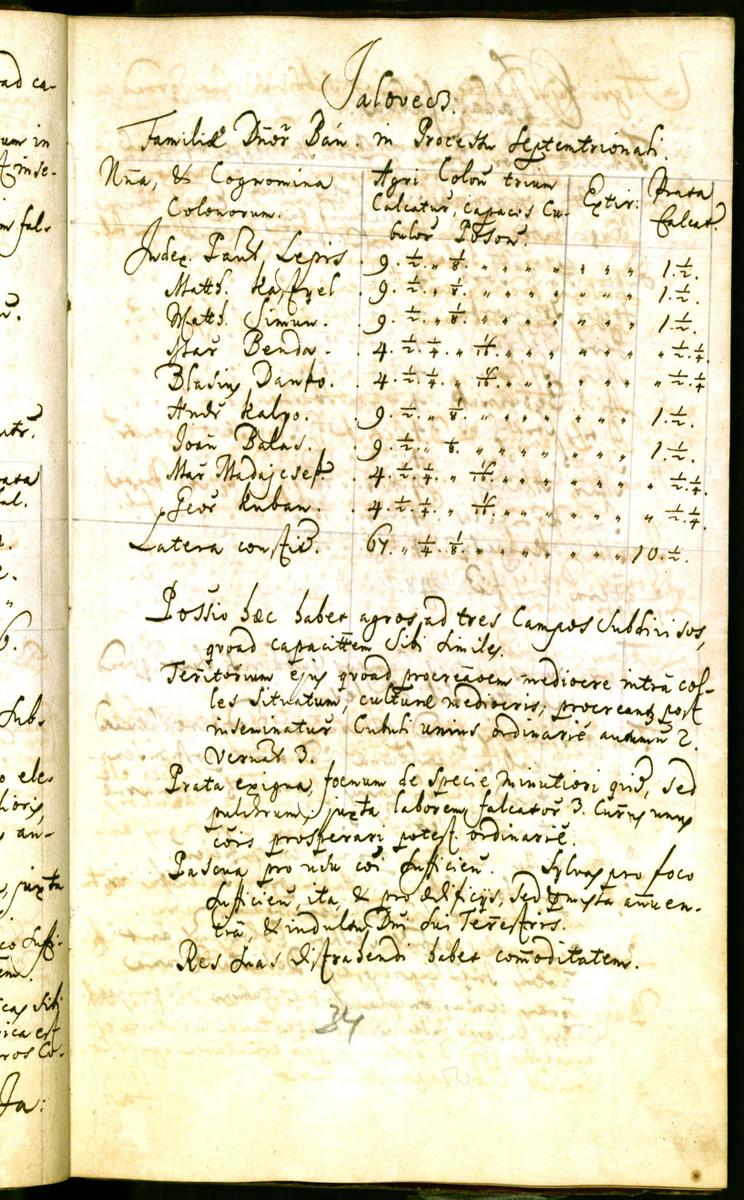 ad ca-
um in
inse-
fal-
ata
al.
6.
Sub-
o ele-
an-
juxta
co suffi-
ros Co-
Ja:
Jalovecz.
Familiae Dnor Ban. in Processu Septemtrionali.
Nna, & Cognomina Colonorum. Agri Colon trium Calcatur, capaces Cubulor Poson. Extir: Prata Calcat.
Judex. Paul, Lepis. 9. ½. „ ⅛. „ „ „ „ „ „ 1. ½.
Math. 9. ½. „ ⅛. „ „ „ „ „ „ 1. ½.
Math. Simun. 9. ½. „ ⅛. „ „ „ „ „ „ 1. ½.
Mar Benda. 4. ½. ¼. „ 1/16. „ „ „ „ „ „ ½. ¼.
Blasius Danko. 4. ½. ¼. „ 1/16. „ „ „ „ „ „ ½. ¼.
Andr Kalpo. 9. ½. „ ⅛. „ „ „ „ „ „ 1. ½.
Joan Balas. 9. ½. „ ⅛. „ „ „ „ „ „ 1. ½.
Mar 4. ½. ¼. „ 1/16. „ „ „ „ „ „ ½. ¼.
Geor Kuban. 4. ½. ¼. „ 1/16. „ „ „ „ „ „ ½. ¼.
Latera 64. „ ¼. ⅛. „ „ „ „ „ „ 10. ½.
Possio haec habet agros, ad tres Campos subdivisos,
quoad capacittem sibi similes.
Teritorium ejus quoad procreaoem mediocre intra col-
les situatum, culturae mediocris, post
inseminatur Cubuli unius ordinarie autumn 2.
Vernat 3.
Prata exigua, foenum de specie minutiori quid, sed
pulchrum, juxta laborem falcator 3. Currus unus
cois prosperari potest ordinarie.
Pascua pro usu coi sufficien. Sylvas pro foco
sufficien, ita, & pro aedificijs, sed annuen-
tia, & indultu Dni sui Terestris.
Res suas distrahendi habet comoditatem.
34